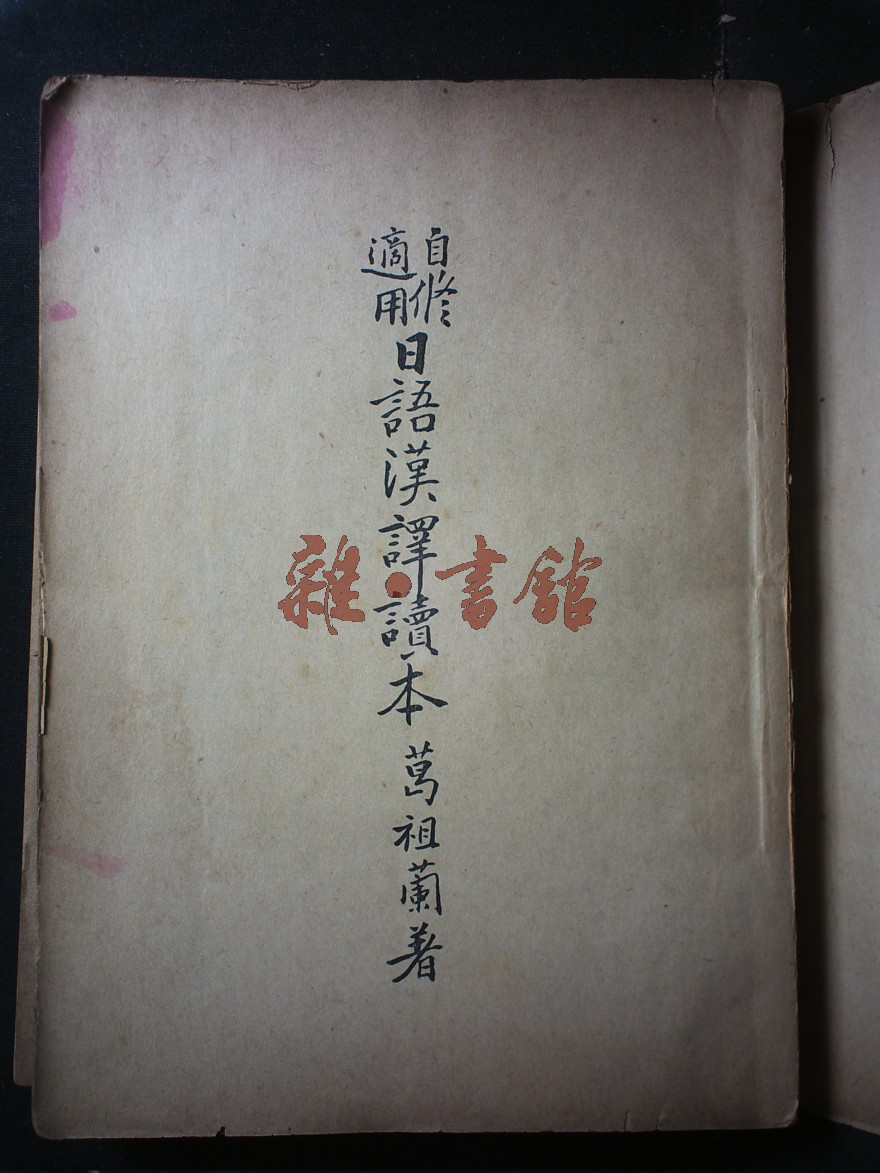 自修
適用
日語漢譯讀本 葛祖蘭著
雜·書館